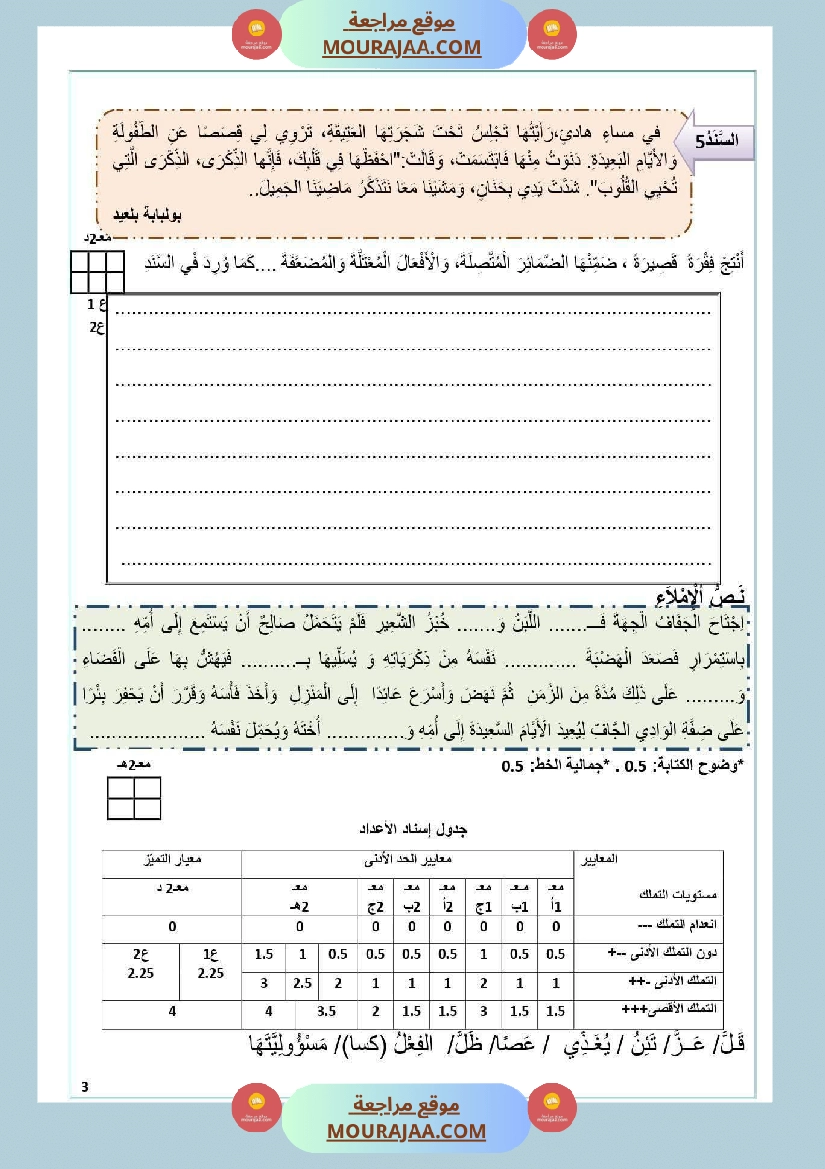 موقع مراجعة
MOURAJAA.COM
السَّنَدُ5
في مساءٍ هادئٍ،رَأَيْتُها تَجْلِسُ تَحْتَ شَجَرَتِهَا العَتِيقَةِ، تَرْوِي لي قِصَصًا عَنِ الطُّفُولَةِ
وَالأَيَّامِ البَعِيدَةِ. دَنَوْتُ مِنْهَا فَابْتَسَمَتْ، وَقَالَتْ:"احْفَظْهَا فِي قَلْبِكَ، فَإِنَّها الذِّكْرَى، الذِّكْرَى الَّتِي
تُحْيِي القُلُوبَ". شَدَّتْ يَدِي بِحَنَانٍ، وَمَشَيْنَا مَعًا نَتَذَكَّرُ مَاضِيَنَا الجَمِيلَ..
بولبابة بلعيد
معـ2د
أُنْتِجُ فِقْرَةً قَصِيرَةً ، ضَمِّنْهَا الضَّمائِرَ الْمُتَّصِلَةَ، وَالْأَفْعَالَ الْمُعْتَلَّةَ وَالمُضَعَّفَةَ ....كَمَا وُرِدَ فْي السَّنَدِ
ع 1
ع2
نَصُّ الْإِمْلَاءِ
اِجْتَاحَ الْجَفَافُ الْجِهَةَ فَـ....... اللَّبَنُ وَ....... خُبْزُ الشَّعِيرِ فَلَمْ يَتَحَمَّلْ صَالِحٌ أَنْ يَسْتَمِعَ إِلَى أُمِّهِ ........
بِاسْتِمْرَارٍ فَصَعَدَ الْهَضْبَةَ ............ نَفْسَهُ مِنْ ذِكْرَيَاتِهِ وَ يُسَلِّيهَا بِـ.......... فَيَهُشُّ بِهَا عَلَى الْفَضَاءِ
وَ......... عَلَى ذَلِكَ مُدَّةً مِنَ الزَّمَنِ ثُمَّ نَهَضَ وَأَسْرَعَ عَائِدًا إِلَى الْمَنْزِلِ وَأَخَذَ فَأْسَهُ وَقَرَّرَ أَنْ يَحْفِرَ بِئْرًا
عَلَى ضِفَّةِ الْوَادِي الجَّافّ لِيُعِيدَ الْأَيَّامَ السَّعِيدَةَ إِلَى أُمِّهِ وَ............. أُخْتَهُ وَيُحَمِّلَ نَفْسَهُ ....................
*وضوح الكتابة: 0.5 . *جمالية الخط: 0.5
معـ2هـ
جدول إسناد الأعداد
المعايير معايير الحد الأدنى معيار التميّز
مستويات التملك معـ 1أ معـ 1ب معـ 1ج معـ 2أ معـ 2ب معـ 2ج معـ 2هـ معـ2 د
انعدام التملك --- 0 0 0 0 0 0 0 0
دون التملك الأدنى --+ 0.5 0.5 1 0.5 0.5 0.5 0.5 1 1.5 ع1 2.25 ع2 2.25
التملك الأدنى -++ 1 1 2 1 1 1 2 2.5 3
التملك الأقصى+++ 1.5 1.5 3 1.5 1.5 2 3.5 4 4
قَلَّ/ عَـزَّ/ تَئِنُّ / يُغَـذِّي / عَصًا/ ظَلَّ/ الفِعْلُ (كسا)/ مَسْؤُولِيَّتَهَا
3
موقع مراجعة
MOURAJAA.COM